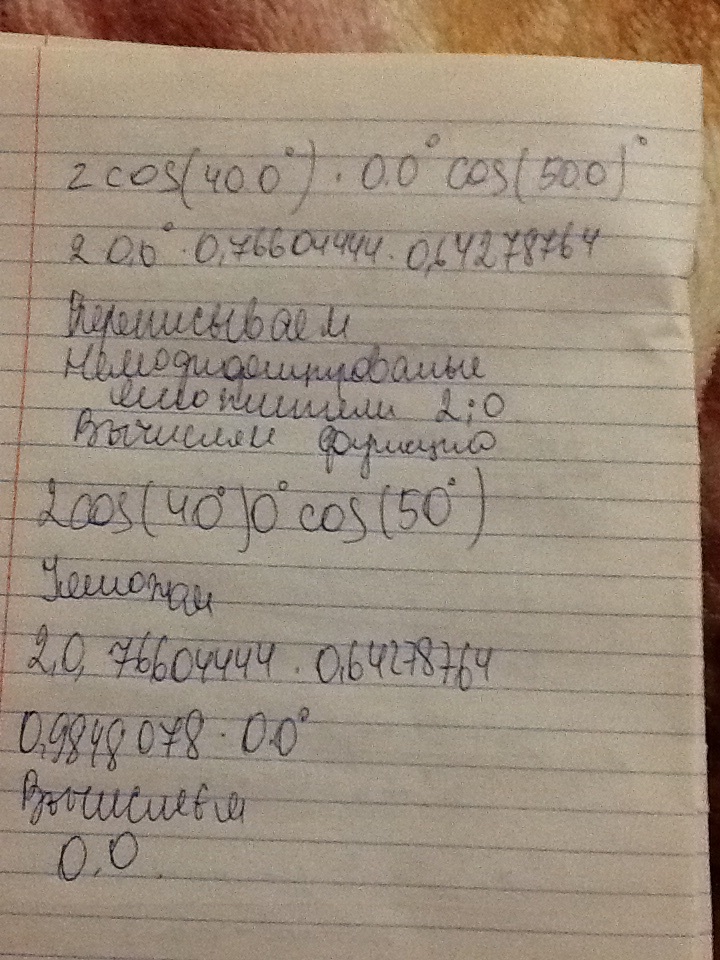 2 cos(40.0°) · 0.0° cos(50.0)°
2 0,0° · 0,76604444 · 0,64278764
Переписываем
множители 2; 0
Вычисляем функцию
2cos(40°)0° cos(50°)
Умножаем
2,0, 76604444 · 0,64278764
0,9848078 · 0.0°
Вычисляем
0.0.